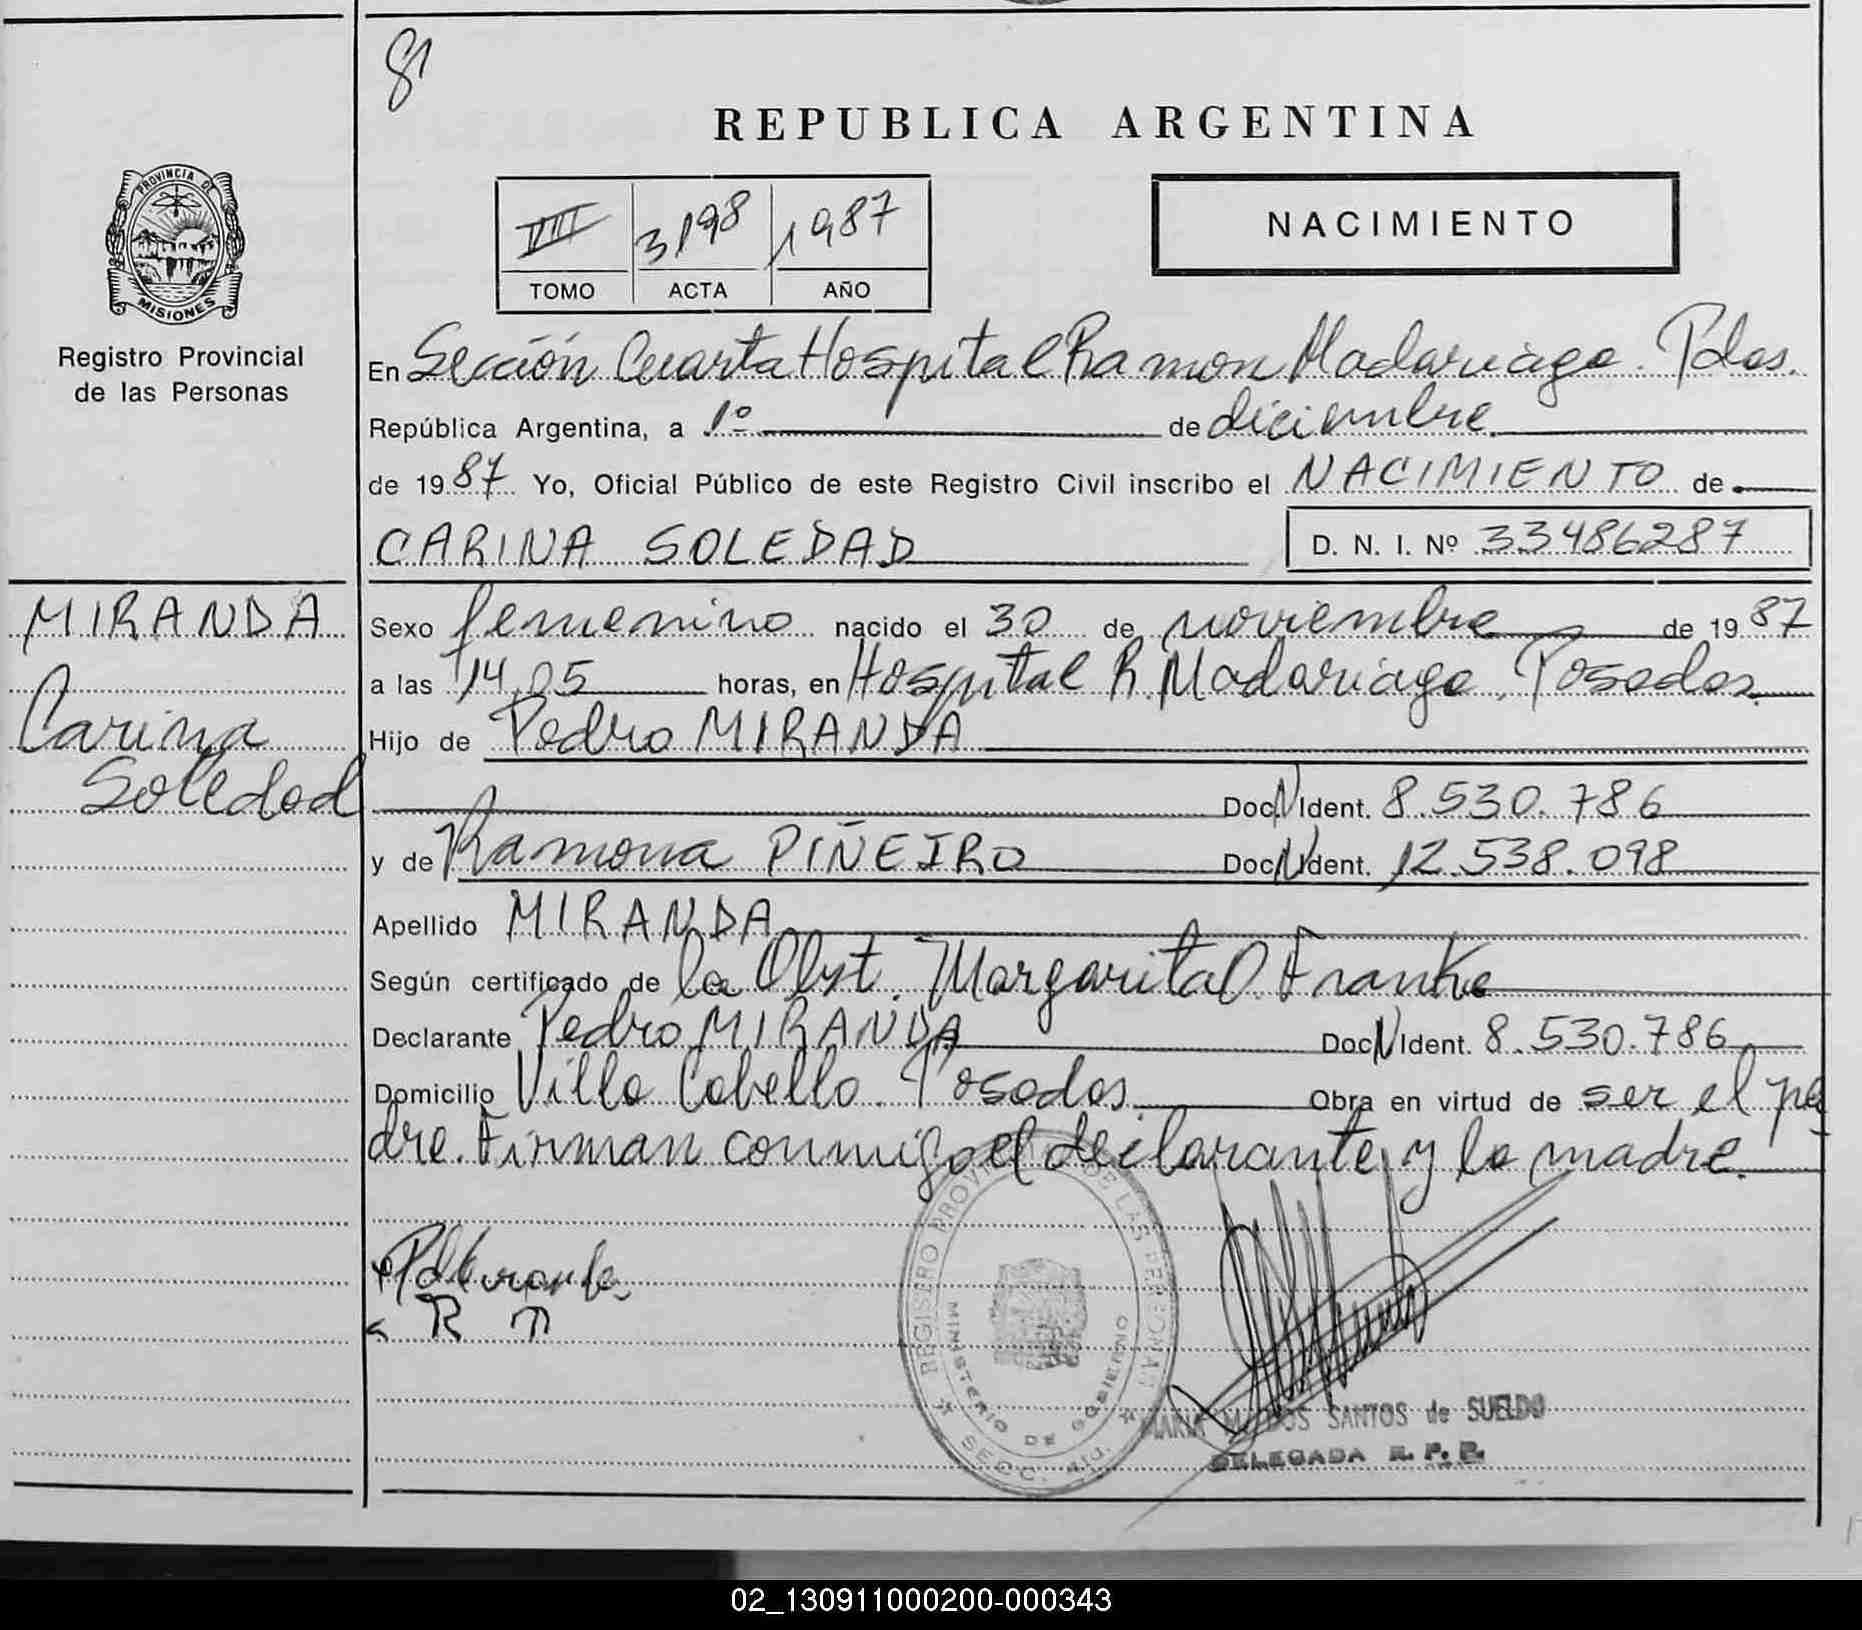 8
REPUBLICA ARGENTINA
PROVINCIA DE
MISIONES
Registro Provincial
de las Personas
VIII 3198 1987
TOMO ACTA AÑO
NACIMIENTO
En Sección Cuarta Hospital Ramon Madariaga. Pdas.
República Argentina, a 1º de diciembre
de 1987 Yo, Oficial Público de este Registro Civil inscribo el NACIMIENTO de
CARINA SOLEDAD D. N. I. Nº 33486287
MIRANDA
Carina
Soledad
Sexo femenino nacido el 30 de noviembre de 1987
a las 14,05 horas, en Hospital R. Madariaga, Posadas.
Hijo de Pedro MIRANDA
Doc. N Ident. 8.530.786
y de Ramona PIÑEIRO Doc. N Ident. 12.538.098
Apellido MIRANDA
Según certificado de la Obst. Margarita O. Franke
Declarante Pedro MIRANDA Doc. N Ident. 8.530.786
Domicilio Villa Cabello. Posadas. Obra en virtud de ser el pa
dre. Firman conmigo el declarante y la madre.
R P
REGISTRO PROVINCIAL DE LAS PERSONAS
MINISTERIO DE GOBIERNO
SECC. 4ta.
MARIA SANTOS de SUELDO
DELEGADA R. P. P.
02_130911000200-000343